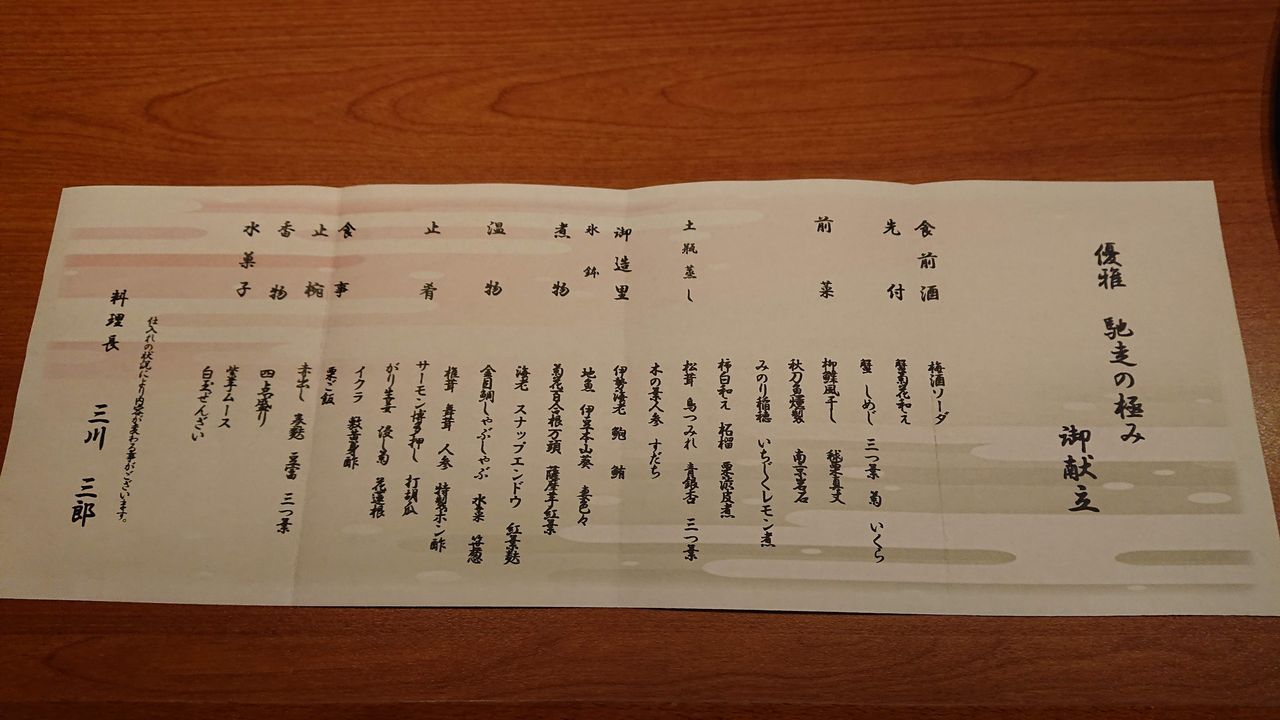 優雅 馳走の極み
御献立
食前酒 梅酒ソーダ
先付 蟹菊花和え
蟹 しめじ 三つ葉 菊 いくら
前菜 柳鰈風干し 毬栗真丈
秋刀魚燻製 南京岩石
みのり稲穂 いちじくレモン煮
柿白和え 柘榴 栗渋皮煮
土瓶蒸し 松茸 鳥つみれ 青銀杏 三つ葉
木の葉人参 すだち
御造里 伊勢海老 鮑 鮪
氷鉢 地魚 伊豆本山葵 妻色々
煮物 菊花百合根万頭 薩摩芋紅葉
海老 スナップエンドウ 紅葉麩
温物 金目鯛しゃぶしゃぶ 水菜 笹葱
椎茸 舞茸 人参 特製ポン酢
止肴 サーモン博多押し 打胡瓜
がり生姜 浸し菊 花蓮根
イクラ 黄身酢
食事 栗ご飯
止椀 赤出し 巻麩 豆富 三つ葉
香物 四点盛り
水菓子 紫芋ムース
白玉ぜんざい
仕入れの状況により内容が変わる事がございます。
料理長 三川 三郎